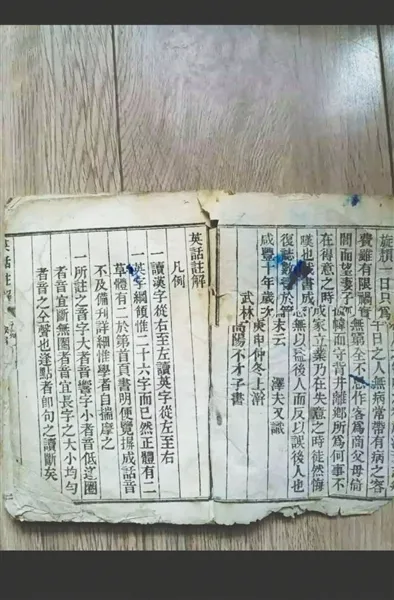 一日只爲千日之人無病常帶有病之客
費雖有限禍害無窮全不思作客爲商父母倚
閭而望妻子幃而守背井離鄉所爲何事不
在得意之時成家立業乃在失意之時徒然悔
嘆也茲書成恐無以益後人而反以誤後人也
復誌數言於末云 澤夫又識
咸豐十年歲次庚申仲冬上澣
武林高陽不才子書
英話註解
凡例
一讀漢字從右至左讀英字從左至右
一英字綱領惟二十六字而已然正體有二
草體有二於第首頁書明便覽成話音
不及備刊詳細惟學者自揣摩之
一所註之音字大者音響字小者音低逢圈
者音宜斷無圈者音宜長字之大小均勻
者音之仝聲也逢點者卽句之讀斷矣
英話註解